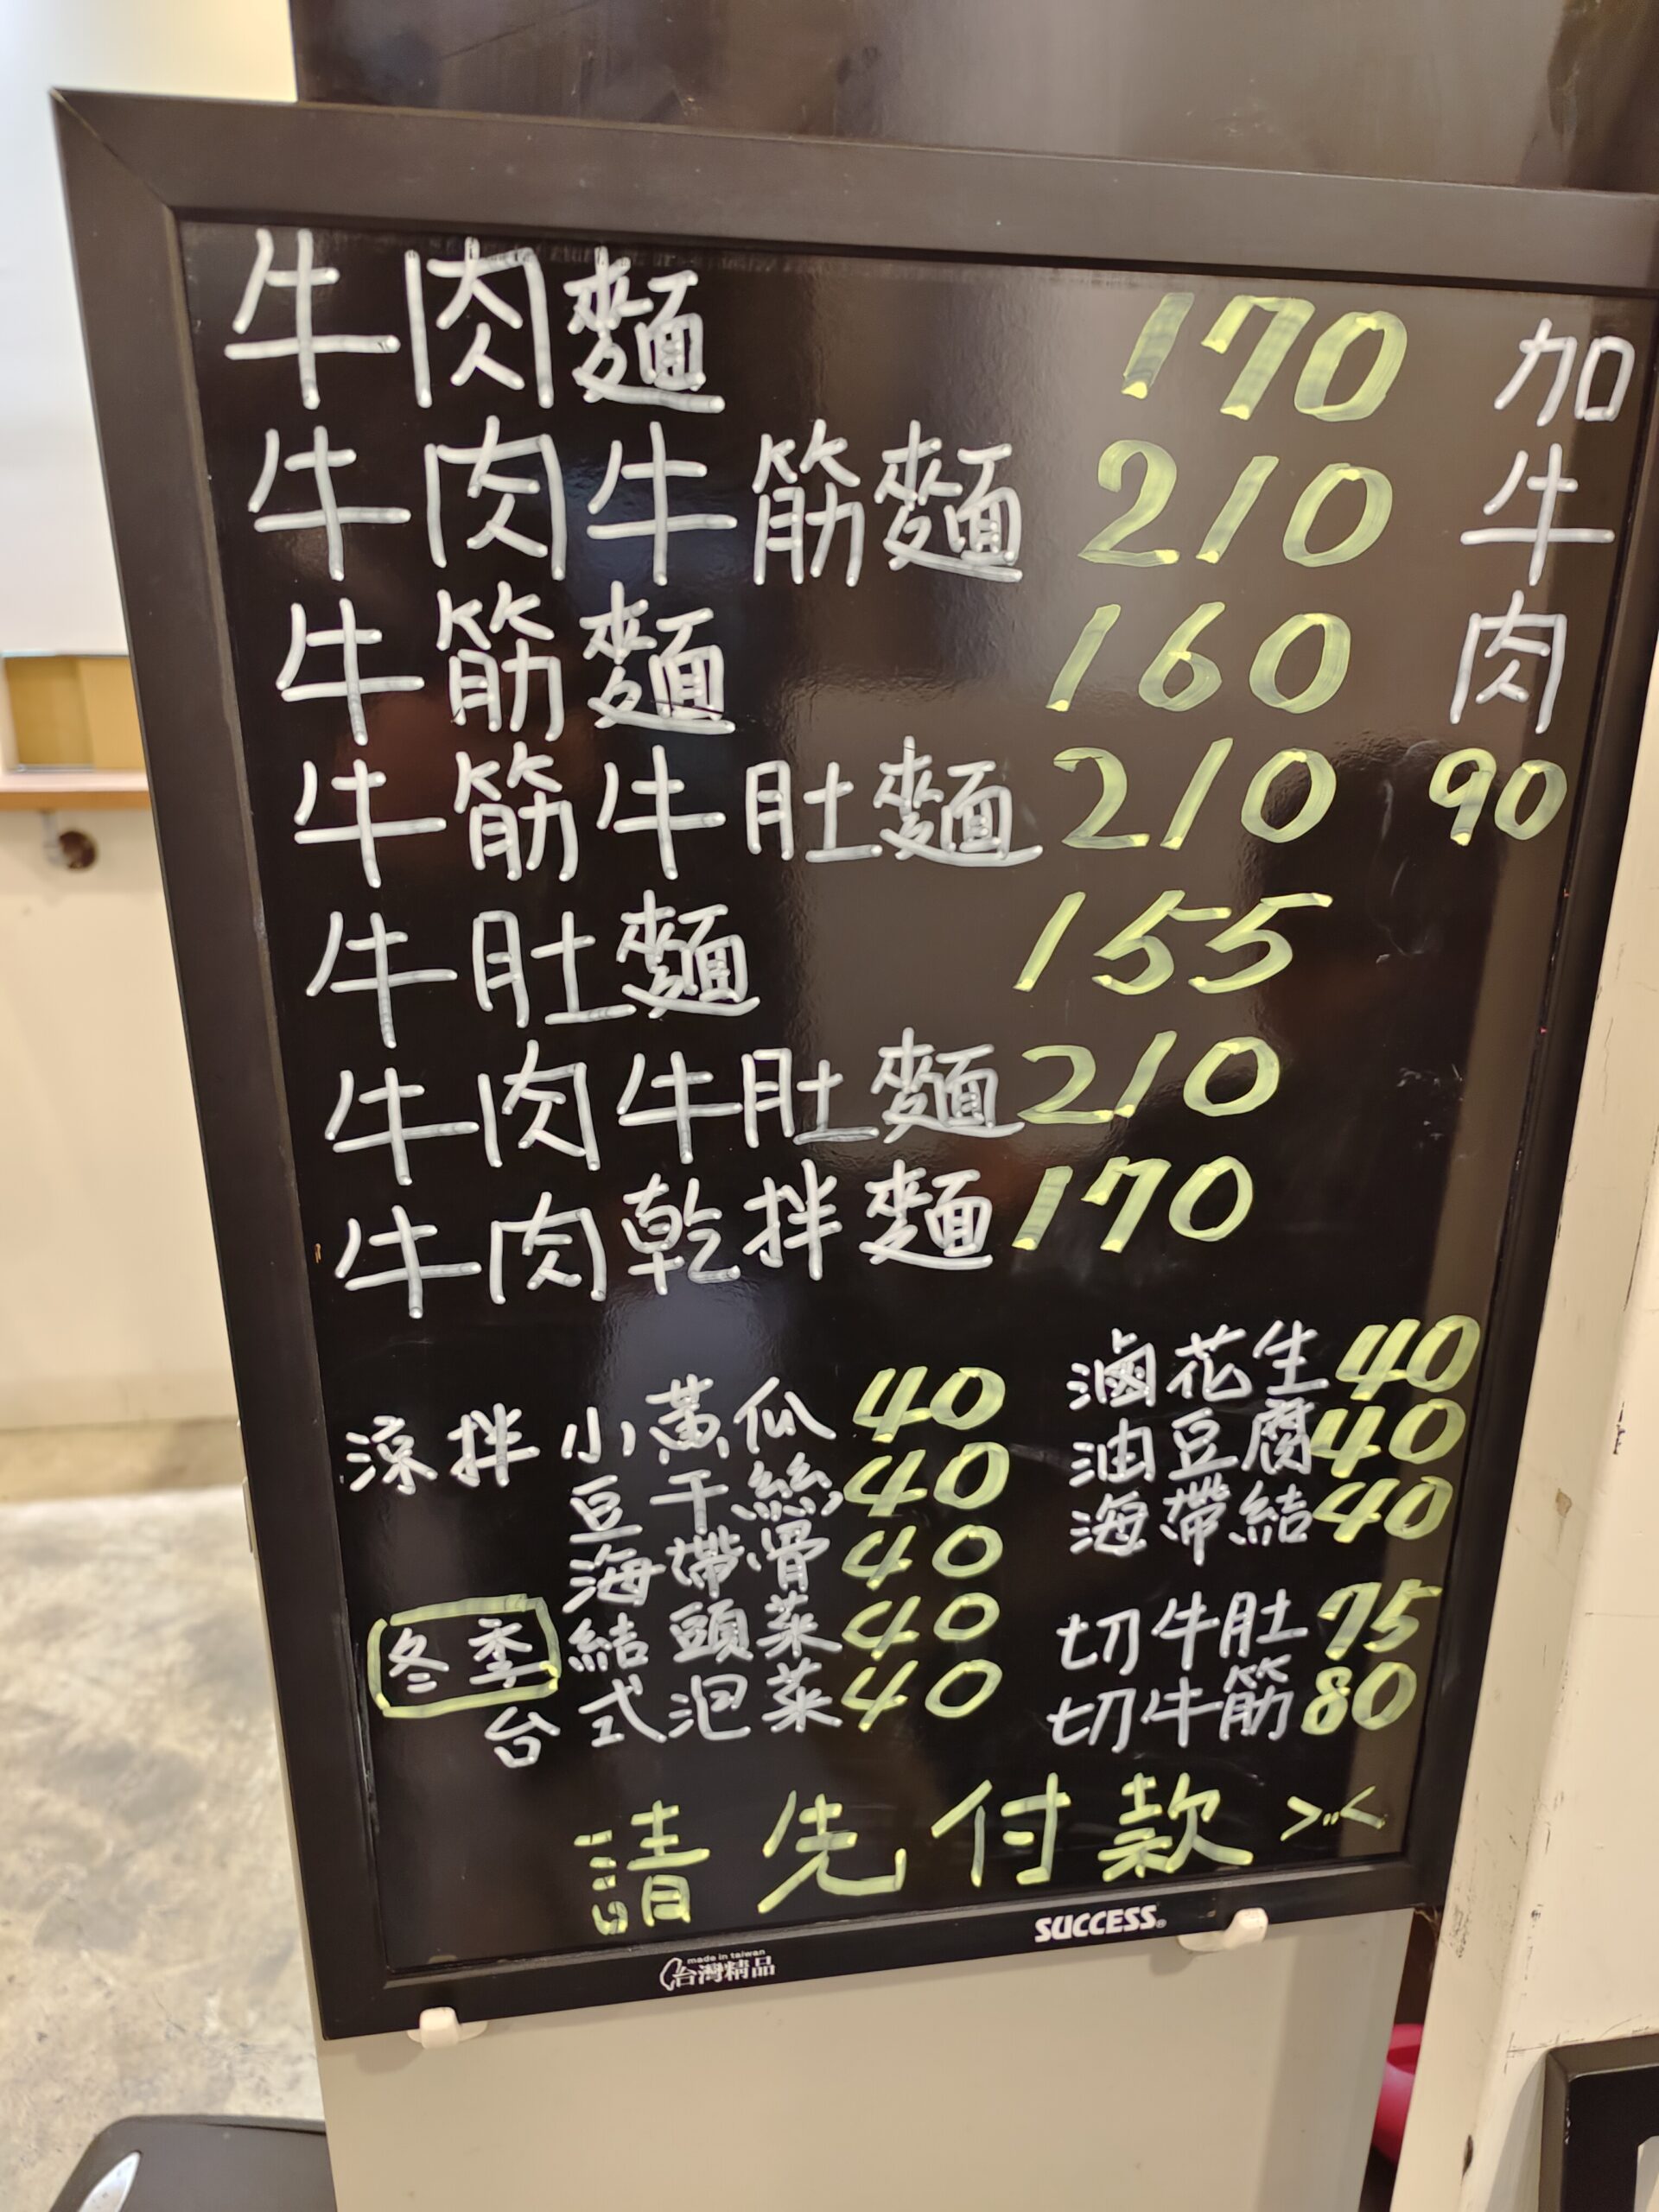 牛肉麵 170
牛肉牛筋麵 210
牛筋麵 160
牛筋牛肚麵 210
牛肚麵 155
牛肉牛肚麵 210
牛肉乾拌麵 170
加牛肉 90
涼拌 小黃瓜 40
豆干絲 40
海帶骨 40
冬季 結頭菜 40
台式泡菜 40
滷花生 40
油豆腐 40
海帶結 40
切牛肚 75
切牛筋 80
請先付款 >..<
SUCCESS®
made in taiwan
台灣精品